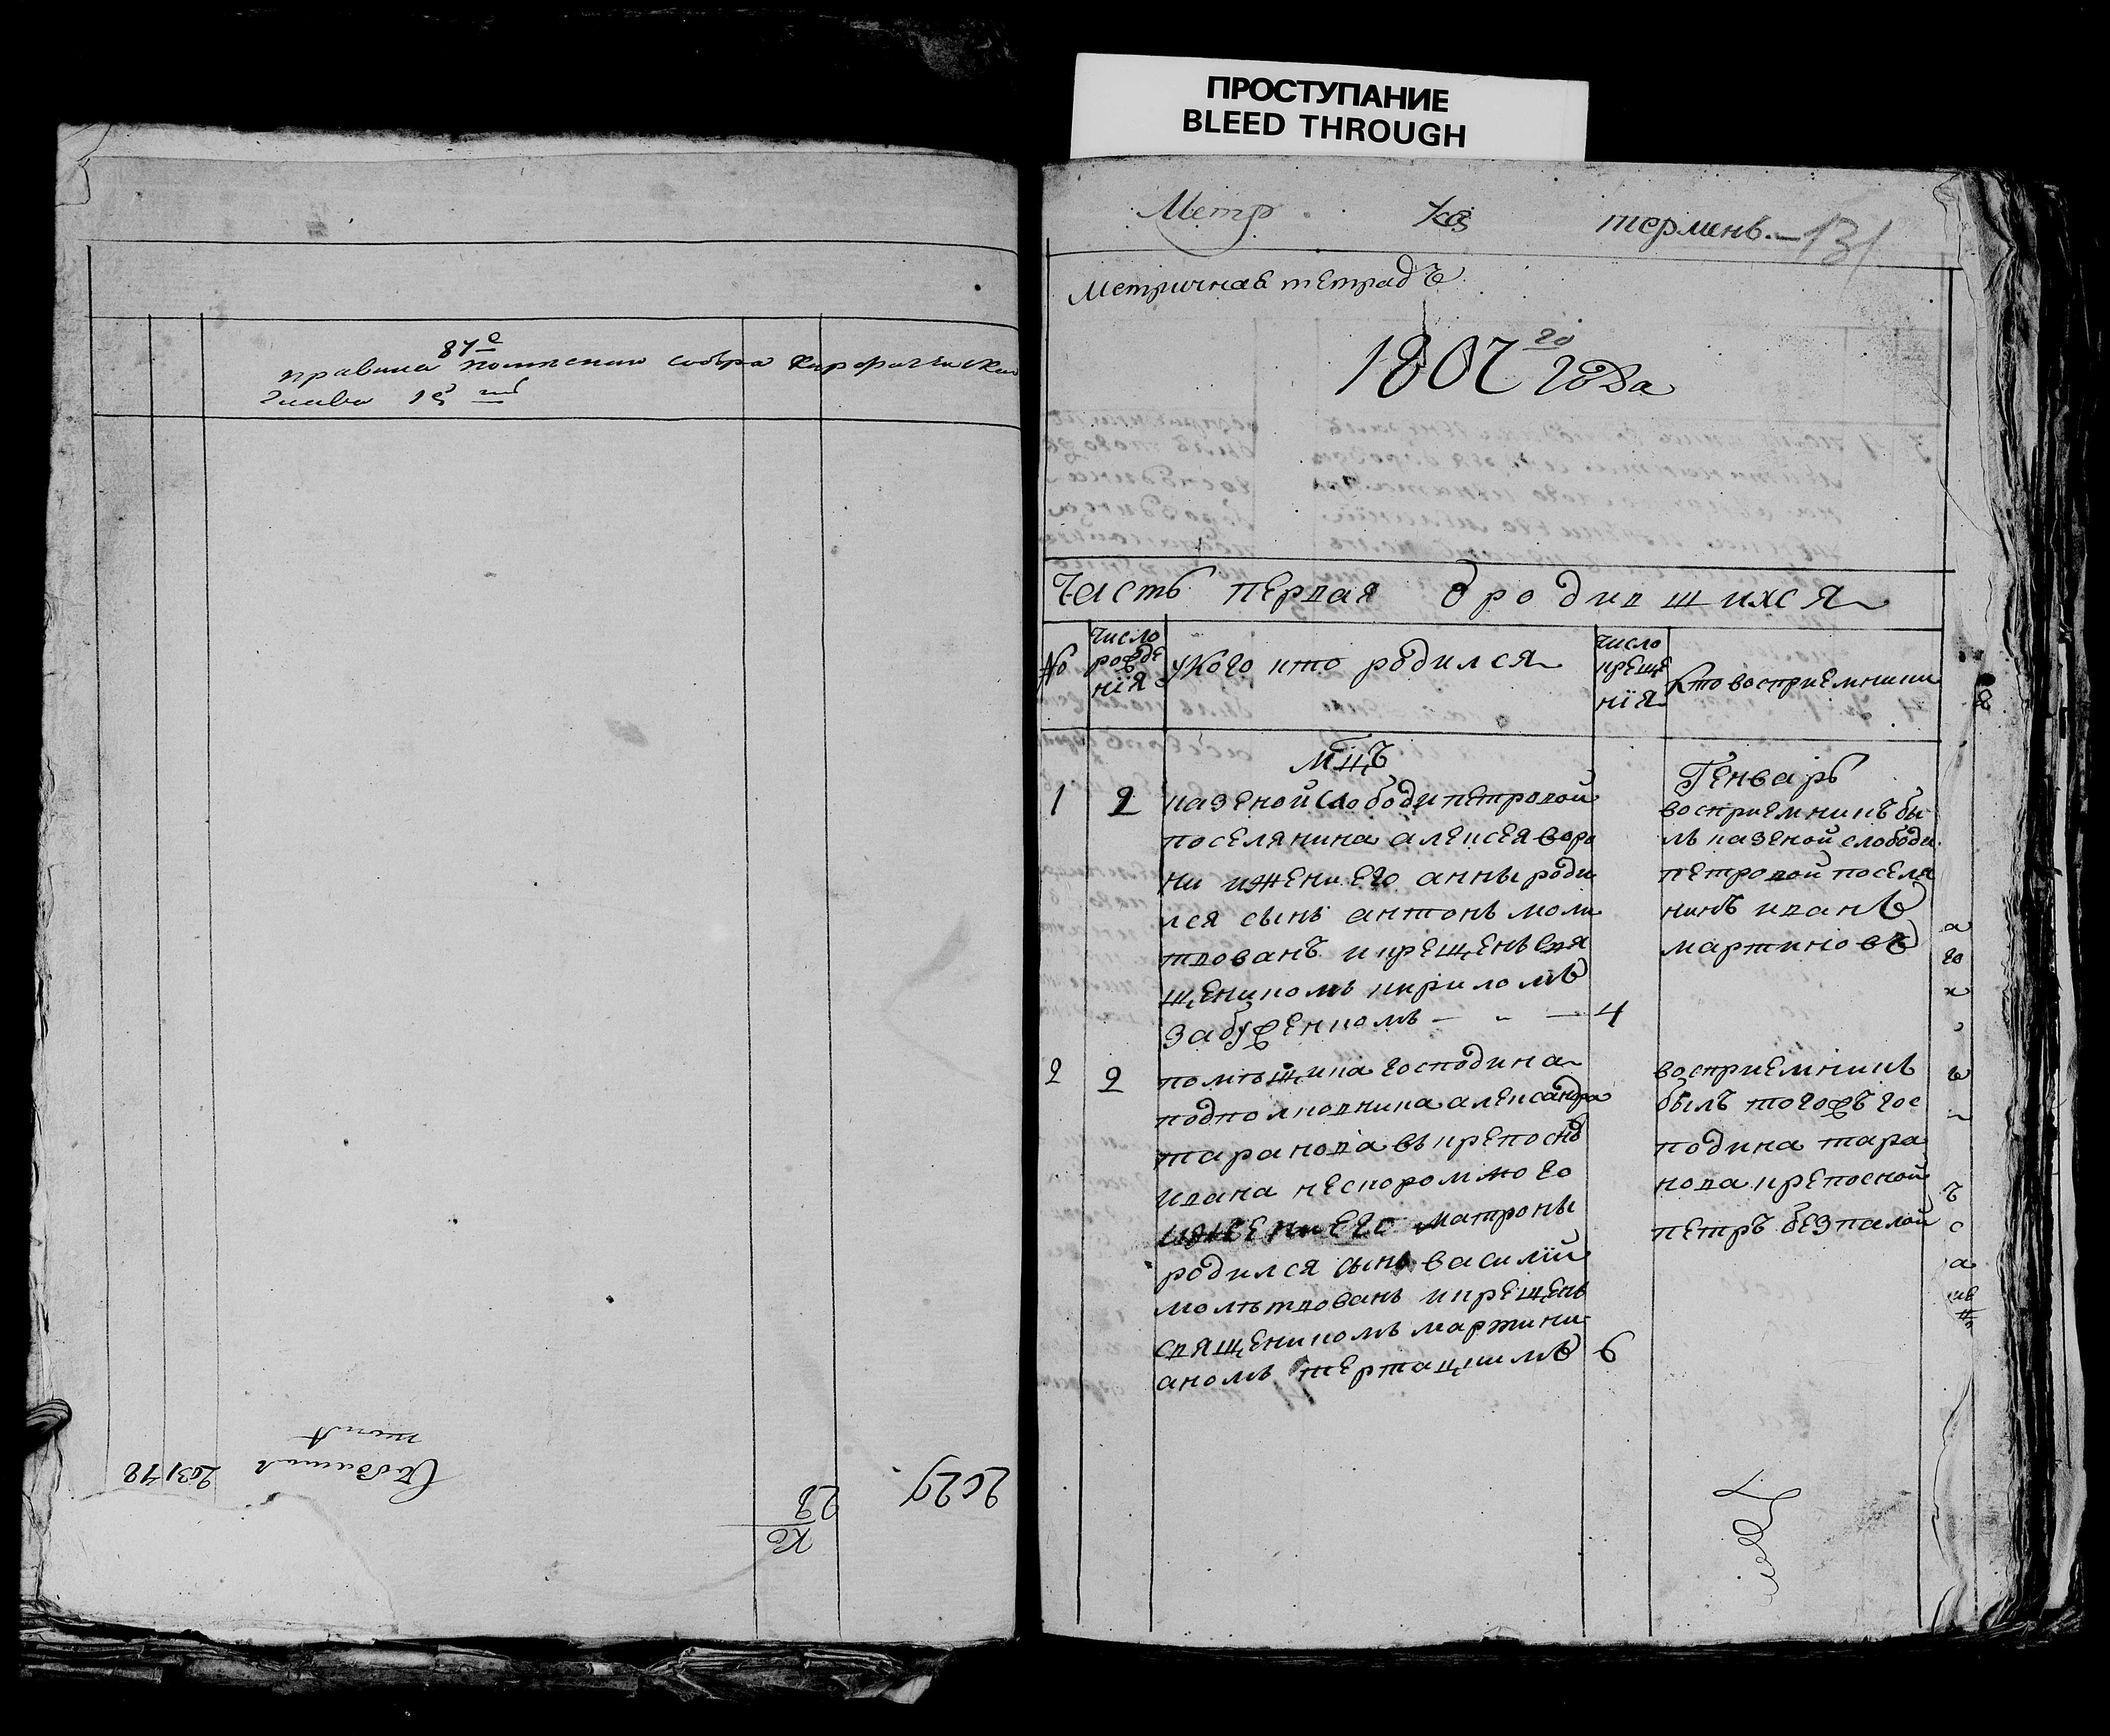 ПРОСТУПАНИЕ
BLEED THROUGH
87е
правила
глава
Метр термень. — 131
Метричная тетрадъ
1807го года
Часть первая о родившихся
№ число рожде нія у кого кто родился число креще нія кто восприемники
мцъ Генварь
1 2 казеной слободи петровой
поселянина алексея воро
ни и жени его анны роди
лся сынъ антонъ моли
твованъ и крещенъ свя
щеникомъ кириломъ
забуженкомъ — " — 4
восприемникъ бы
лъ казеной слободи
петровой поселя
нинъ иванъ
мартиновъ
2 2 помѣщика господина
подполковника александра
таранова въ крепосно
ивана нескоромного
и жени его матроны
родился сынъ василій
молѣтвованъ и крещенъ
священикомъ мартини
аномъ чертацкимъ 6
восприемникъ
былъ тогожъ гос
подина тара
нова крепосной
петръ безпалой
2029
28